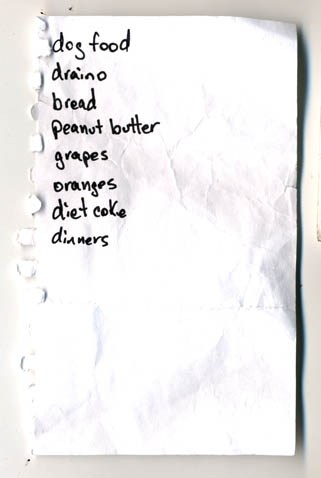 dog food
draino
bread
peanut butter
grapes
oranges
diet coke
dinners